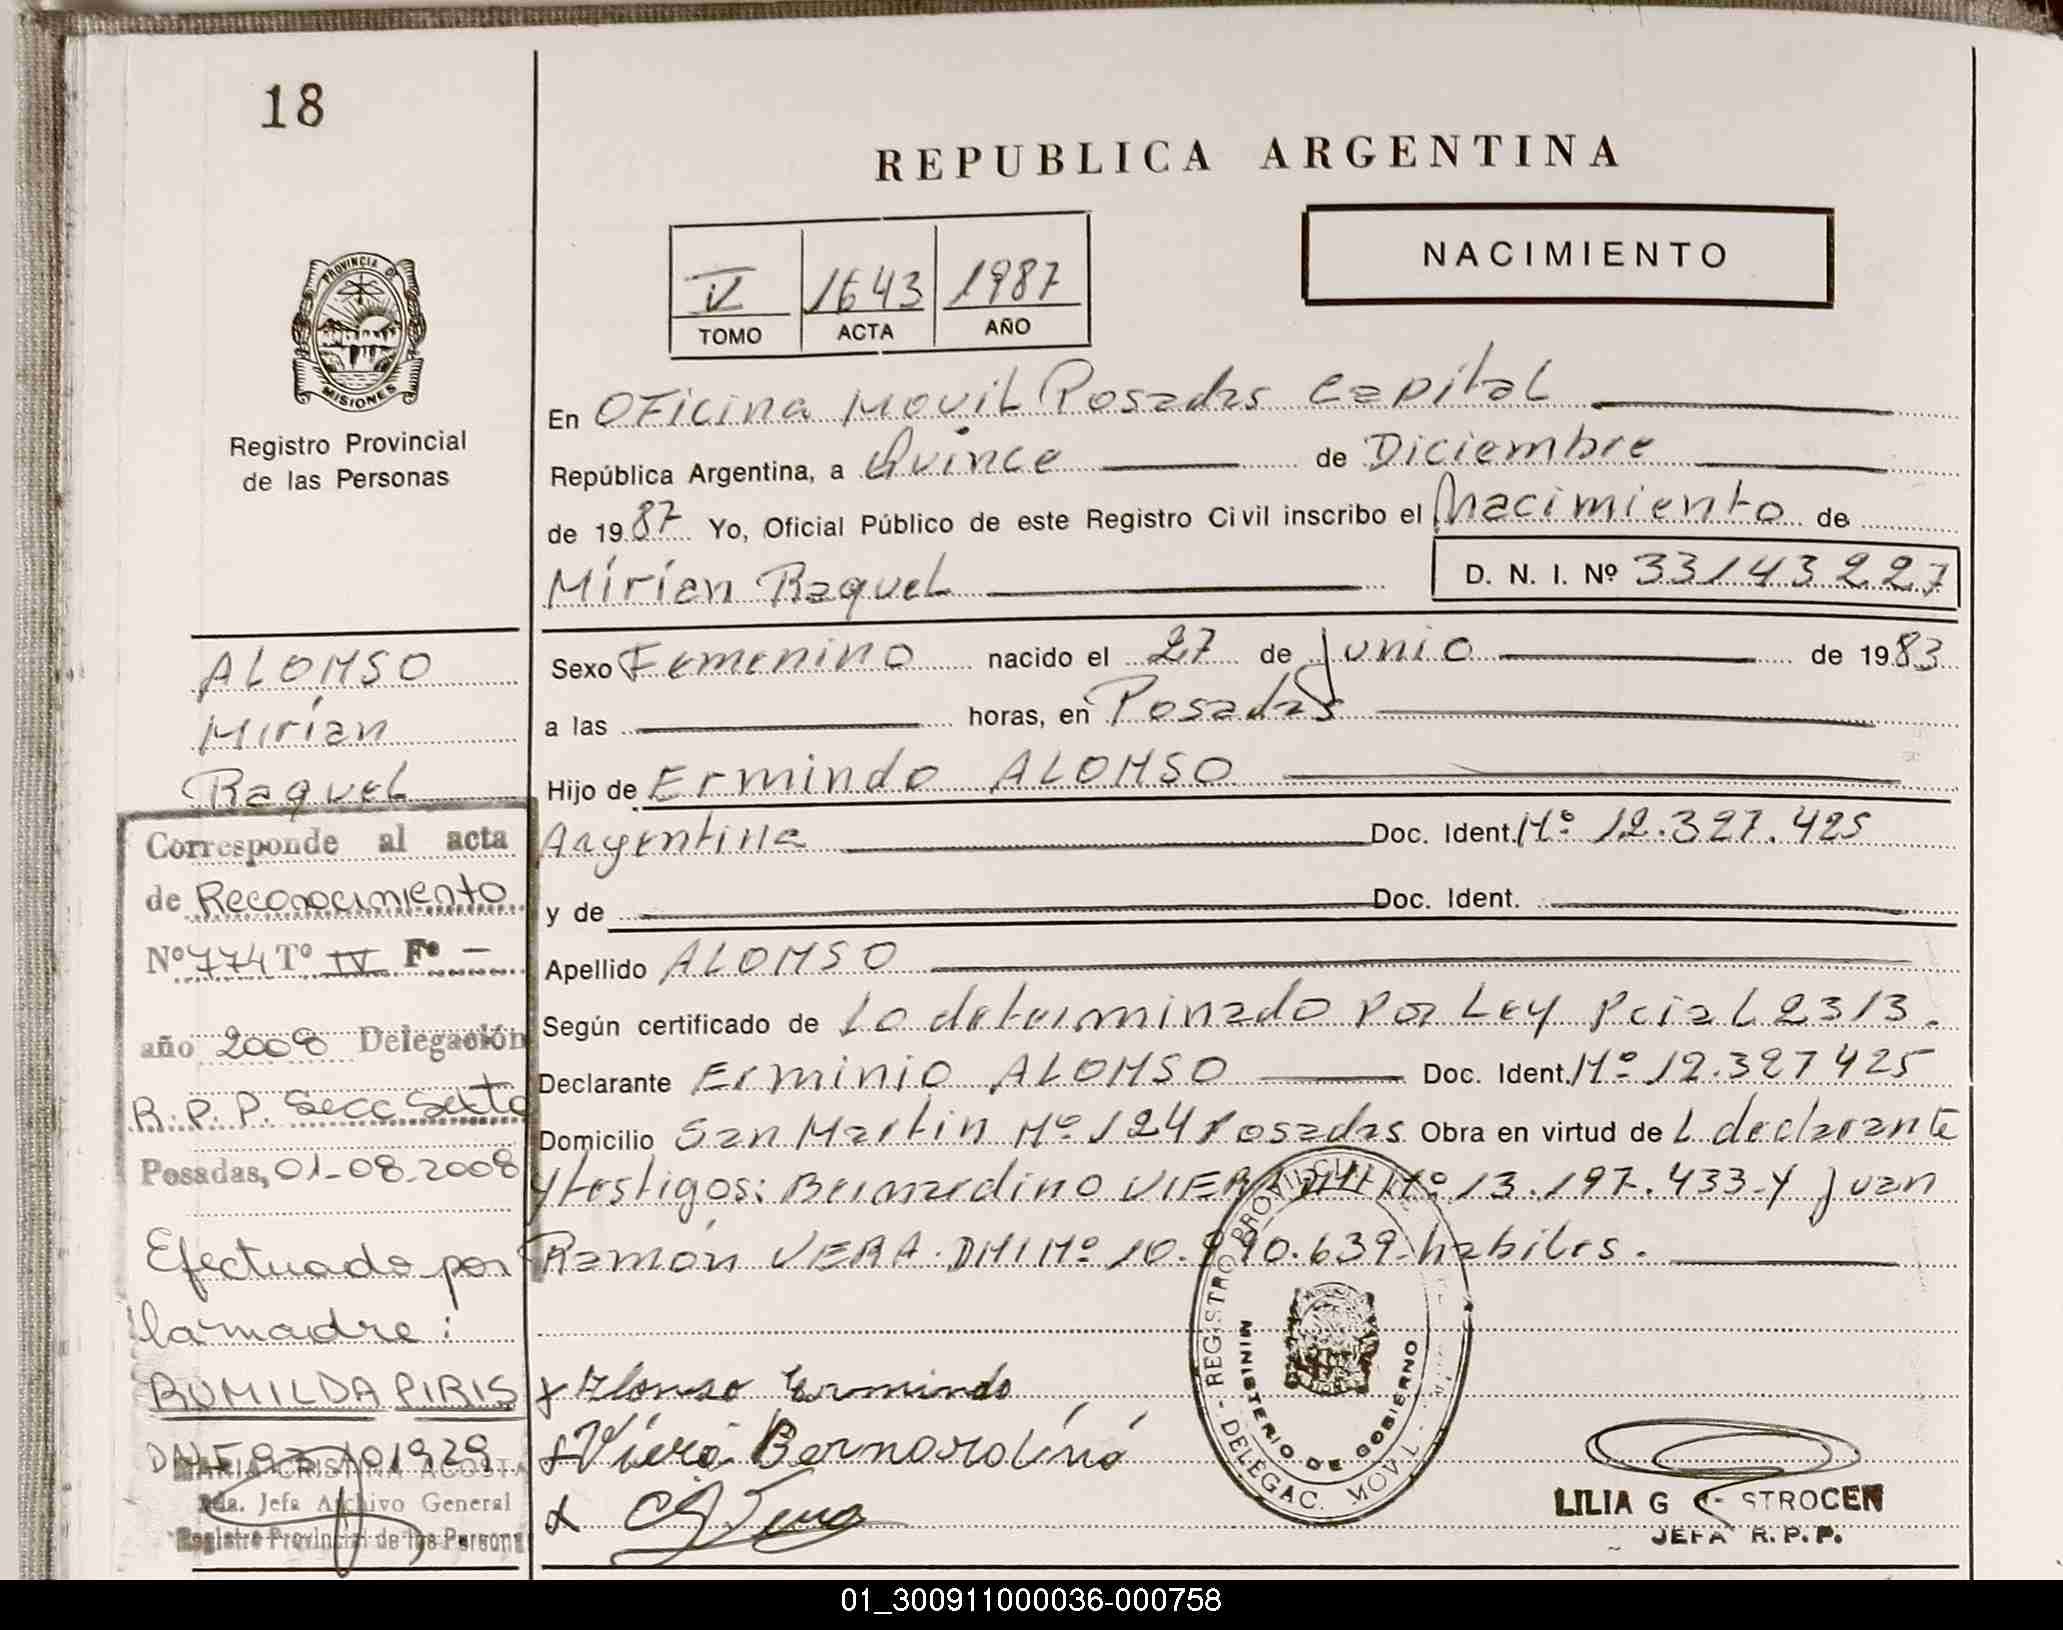 18
REPUBLICA ARGENTINA
NACIMIENTO
IV 1643 1987
TOMO ACTA AÑO
PROVINCIA DE
MISIONES
Registro Provincial
de las Personas
En Oficina Movil Posadas Capital
República Argentina, a Quince de Diciembre
de 1987 Yo, Oficial Público de este Registro Civil inscribo el Nacimiento de
Mirian Raquel D. N. I. Nº 33143227
ALONSO
Mirian
Raquel
Sexo Femenino nacido el 27 de Junio de 1983
a las horas, en Posadas
Hijo de Ermindo ALONSO
Argentina Doc. Ident. Nº 12.327.425
y de Doc. Ident.
Apellido ALONSO
Según certificado de Lo determinado por Ley Pcial 2313.
Declarante Erminio ALONSO Doc. Ident. Nº 12.327425
Domicilio San Martin Nº 124 Posadas Obra en virtud de L declarante
y testigos: Bernardino VIERA DNI Nº 13.197.433 y Juan
Ramón VERA DNI Nº 10.990.639 habiles.
Corresponde al acta
de Reconocimiento
Nº 774 Tº IV Fº -
año 2008 Delegación
R.P.P. Secc Sexta
Posadas, 01-08-2008
Efectuado por
la madre:
RUMILDA PIRIS
MARIA CRISTINA ACOSTA
2da. Jefa Archivo General
Registro Provincial de las Persona
x Alonso Ermindo
x Viera Bernardino
x
REGISTRO PROVINCIAL
DELEGAC. MOVIL
MINISTERIO DE GOBIERNO
LILIA G STROCEN
JEFA R.P.P.
01_300911000036-000758